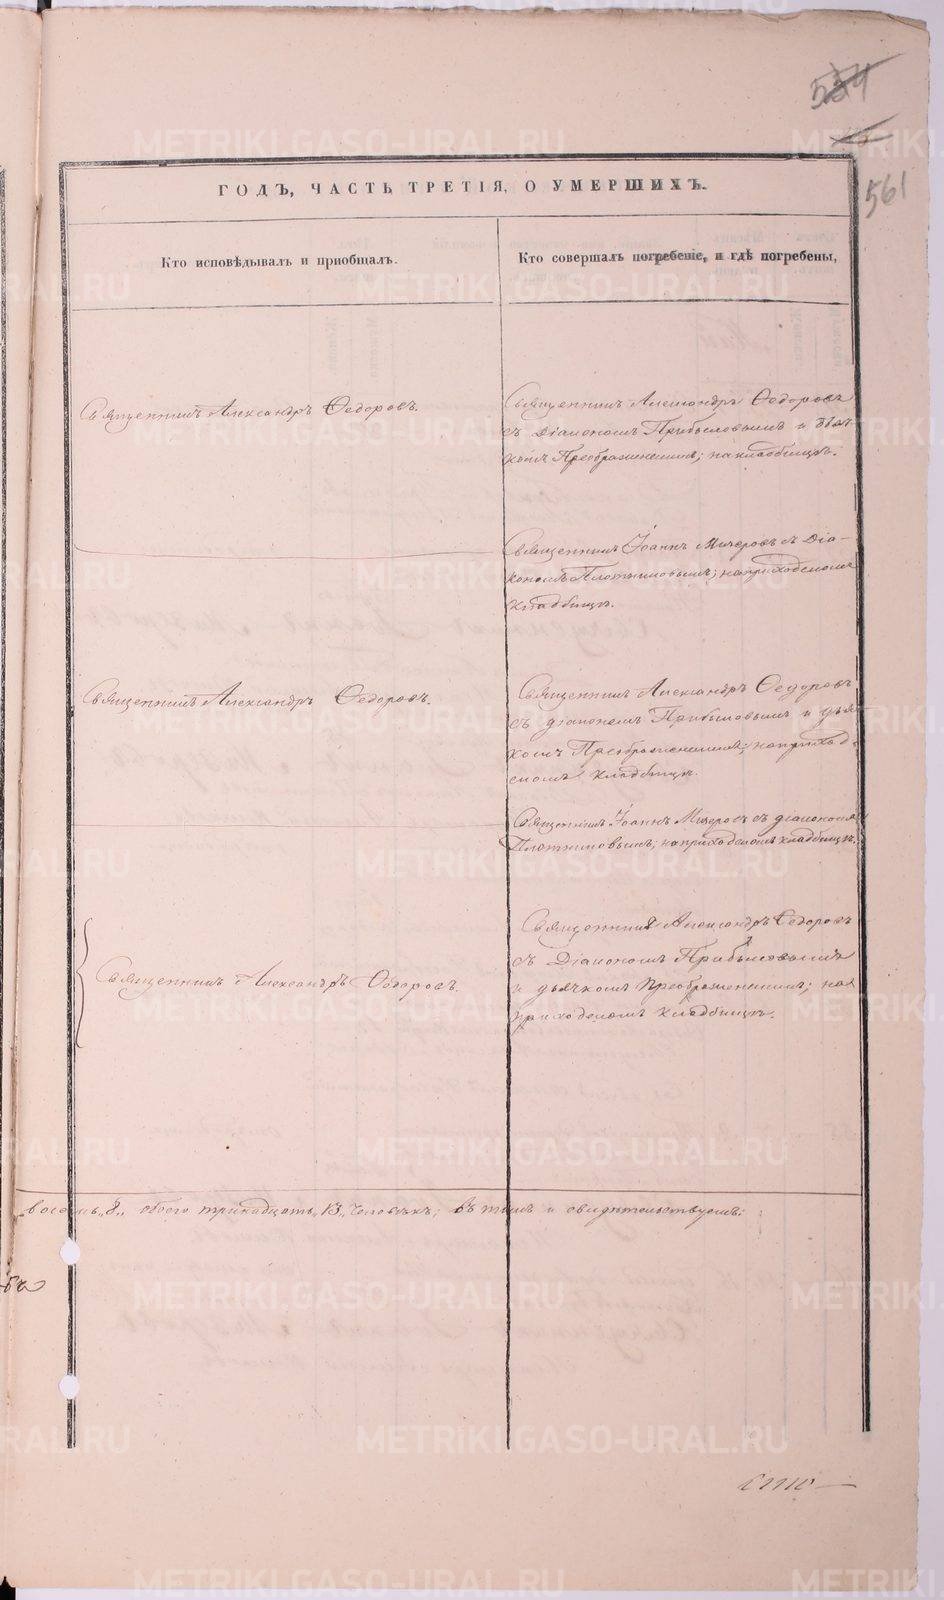 561
ГОДЪ, ЧАСТЬ ТРЕТІЯ, О УМЕРШИХЪ.
Кто исповѣдывалъ и приобщалъ.
Кто совершалъ погребеніе, и гдѣ погребены,
Священникъ Александръ Ѳедоровъ.
Священникъ Александръ Ѳедоровъ
съ Діакономъ Прибыловымъ и дьяч-
комъ Преображенскимъ; на кладбищѣ.
Священникъ Іоаннъ Мичеровъ съ Діа-
кономъ Плотниковымъ; на приходскомъ
кладбищѣ.
Священникъ Александръ Ѳедоровъ.
Священникъ Александръ Ѳедоровъ
съ діакономъ Прибыловымъ и дьяч
комъ Преображенскимъ; на приход-
скомъ кладбищѣ.
Священникъ Іоаннъ Мичеровъ съ діакономъ
Плотниковымъ; на приходскомъ кладбищѣ.
Священникъ Александръ Ѳедоровъ.
Священникъ Александръ Ѳедоровъ
съ Діакономъ Прибыловымъ
и дьячкомъ Преображенскимъ; на
приходскомъ кладбищѣ.
восемь „8„ обоего тринадцать „13„ человѣкъ; въ томъ и свидѣтельствуемъ:
METRIKI.GASO-URAL.RU